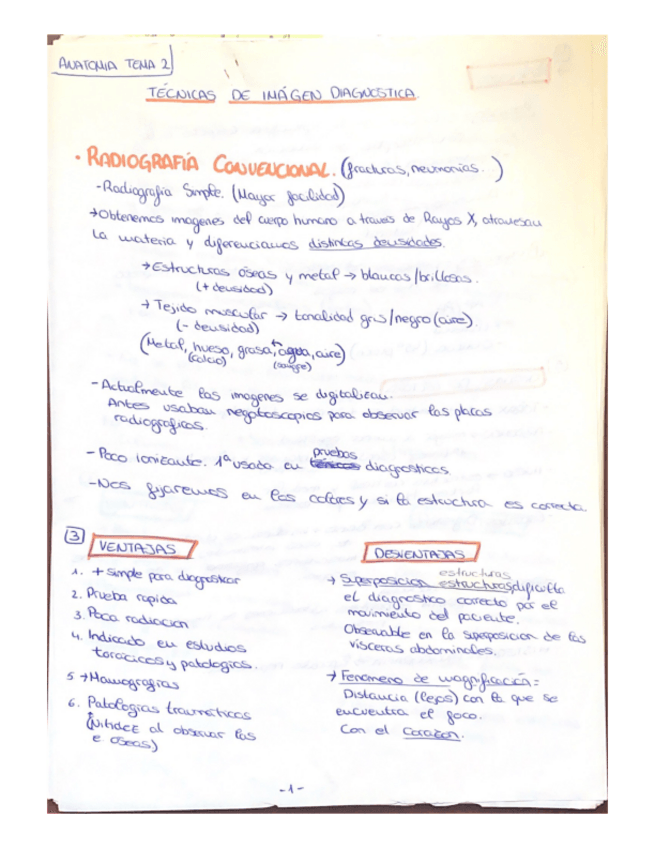 ANATOMIA TEMA 2
TÉCNICAS DE IMÁGEN DIAGNOSTICA
• RADIOGRAFÍA CONVENCIONAL. (fracturas, neumonías..)
- Radiografía Simple. (Mayor facilidad)
→ Obtenemos imagenes del cuerpo humano a traves de Rayos X, atraviesan
la materia y diferenciamos distintas densidades.
→ Estructuras óseas y metal → blancas/brillosas.
(+ densidad)
→ Tejido muscular → tonalidad gris/negro (aire).
(- densidad)
(Metal, hueso, grasa, agua, aire)
(calcio) (sangre)
- Actualmente las imagenes se digitalizan.
Antes usaban negatoscopios para observar las placas
radiograficas.
- Poco ionizante. 1ª usada en pruebas diagnosticas
- Nos fijaremos en los colores y si la estructura es correcta
3 VENTAJAS
1. + simple para diagnosticar
2. Prueba rapida
3. Poca radiacion
4. Indicado en estudios
toracicos y patologias.
5 → Mamografias
6. Patologias traumáticas
(Nitidez al observar las
e. oseas)
DESVENTAJAS
→ Superposicion estructuras, dificulta
el diagnostico correcto por el
movimiento del paciente.
Observable en la superposicion de las
visceras abdominales.
→ Fenomeno de magnificación =
Distancia (lejos) con la que se
encuentra el foco.
Con el corazon.
-1-